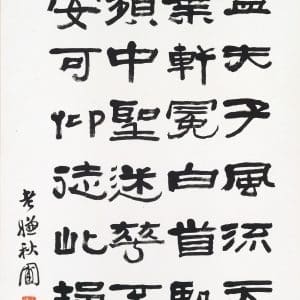 孟夫子風流天
棄軒冕白首臥
頻中聖迷華不
安可仰徒此揖
老嫌秋圃